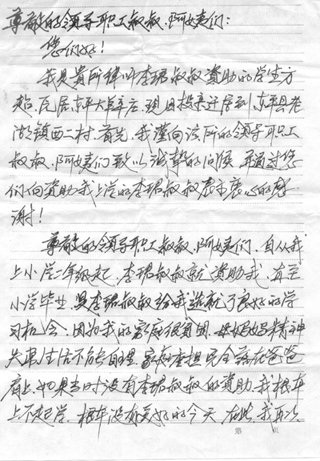 尊敬的领导职工叔叔、阿姨们：
您们好！
我是贵所律师李珺叔叔资助的学生方
超，
湖镇西二村。首先，我谨向该所的领导职工
叔叔、阿姨们致以诚挚的问候，并通过您
们向资助我上学的李珺叔叔表示衷心的感
谢！
尊敬的领导职工叔叔、阿姨们，自从我
上小学一年级起，李珺叔叔就资助我，直至
小学毕业，是李珺叔叔给我送来了良好的学
习机会，因为我的家庭很贫困，妈妈精神
失常生活不能自理，家庭重担完全落在爸爸
肩上，如果当时没有李珺叔叔的资助，我根本
上不起学，根本没有美好的今天，在此，我再次
第 页